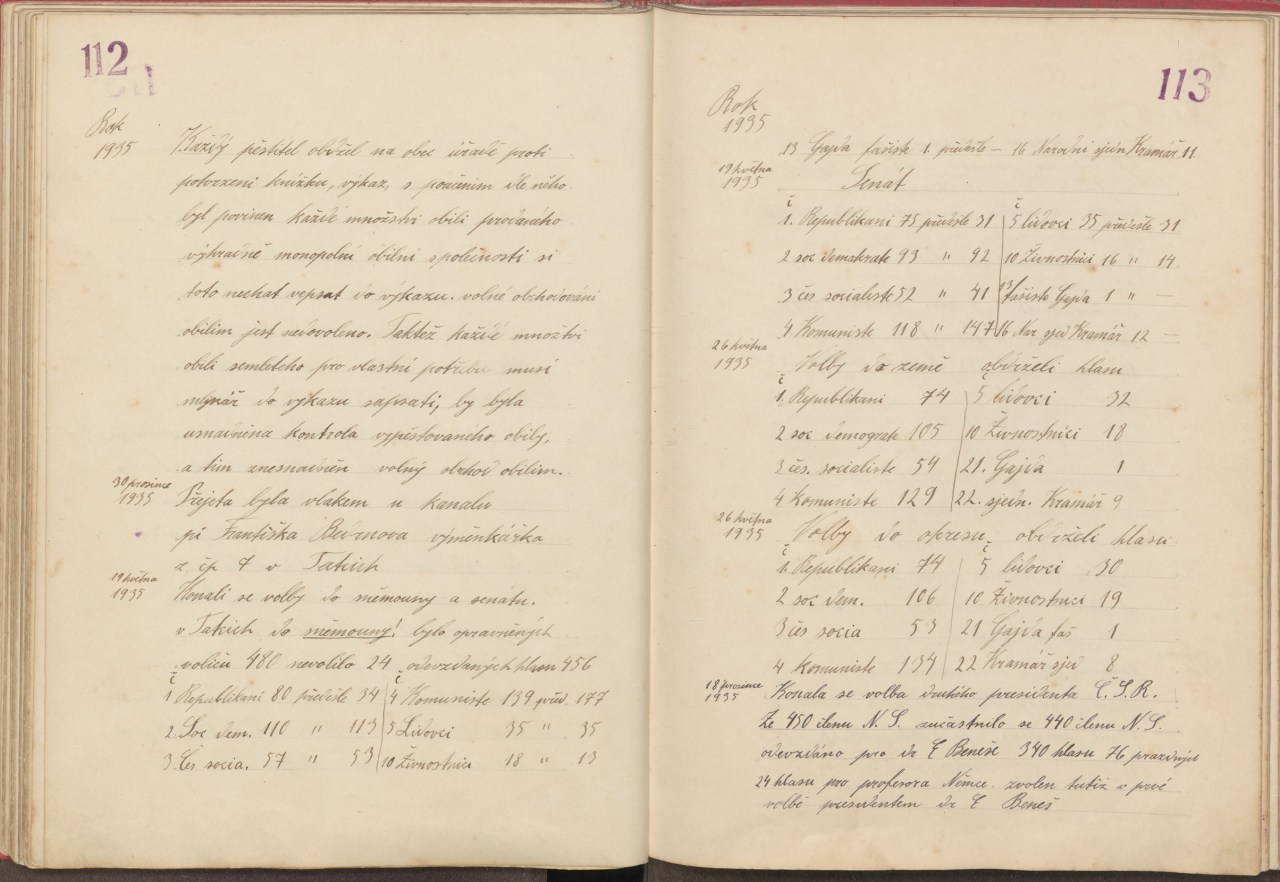 112
Rok
1935
Každý pěstitel obdržel na obec úřadě proti
potvrzení knížku, výkaz, s poučením dle něho
byl povinen každé množství obilí prodaného
výhradně monopolní obilní společnosti si
toto nechat vepsat do výkazu. volné obchodování
obilím jest nedovoleno. Taktéž každé množtví
obilí semletého pro vlastní potřebu musí
mlynář do výkazu zapsati, by byla
usnadněna kontrola vypěstovaného obily,
a tím znesnadněn volný obchod obilím.
30 prosince
1935
Přejeta byla vlakem u kanalu
pí Františka Burnova výměnkářka
z čp 7 v Tatcích
19 května
1935
Konali se volby do němouny a senátu.
v Tatcích do němouny! bylo opravněných
voličů 480 nevolilo 24 odevzdaných hlasu 456
č č
1 Republikani 80 předešle 34 4 Komuniste 139 před. 177
2. Soc dem. 110 " 113 5 Lidovci 35 " 35
3. Čes socia. 57 " 53 10 Živnostnici 18 " 13
113
Rok
1935
13 Gajda fašiste 1. předešle – 16 Narodni sjedn Kramář 11
19 května
1935
Senát
č č
1. Republikani 75 předešle 31 5 lidovci 35 předešle 31
2 soc demokrate 93 " 92 10 Živnostnici 16 " 14
3 čes socialiste 52 " 41 13 fašiste Gajda 1 " —
4 Komuniste 118 " 147 16 Nar sjed Kramář 12 —
26 května
1935
Volby do země obdrželi hlasu
č č
1. Republikani 74 5 lidovci 32
2 soc demograte 105 10 Živnostnici 18
3 čes. socialiste 54 21. Gajda 1
4 Komuniste 129 22. sjedn. Kramář 9
26 května
1935
Volby do opresu obdrželi hlasu
č č
1. Republikani 74 5 lidovci 30
2 soc dem. 106 10 Živnostnici 19
3 čes socia 53 21 Gajda faš 1
4 Komuniste 134 22 Kramář sjed 8
18 prosince
1935
Konala se volba druhého presidenta Č. S. R.
Ze 450 členu N. S. zučastnilo se 440 členu N. S.
odevzdáno pro dr E Beneše 340 hlasu 76 prazdných
24 hlasu pro profesora Němce. zvolen tutiž v prvé
volbě presidentem dr E Beneš